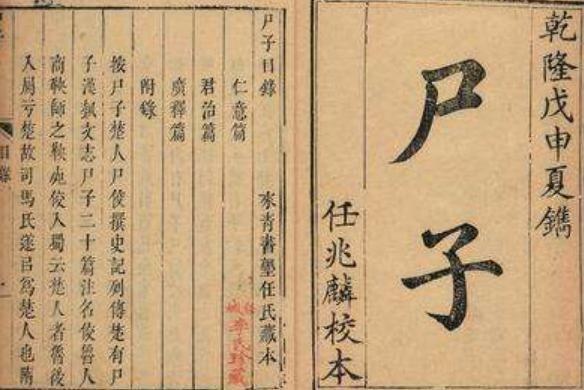 乾隆戊申夏鐫
尸子
任兆麟校本
尸子目錄
來青書塾任氏藏本
仁意篇
君治篇
廣釋篇
附錄
按尸子楚人尸佼撰史記列傳楚有尸
子漢蓺文志尸子二十篇注名佼魯人
商鞅師之鞅死佼入蜀云楚人者魯後
入屬亏楚故司馬氏遂㠯爲楚人也隋
李氏珍藏
目錄